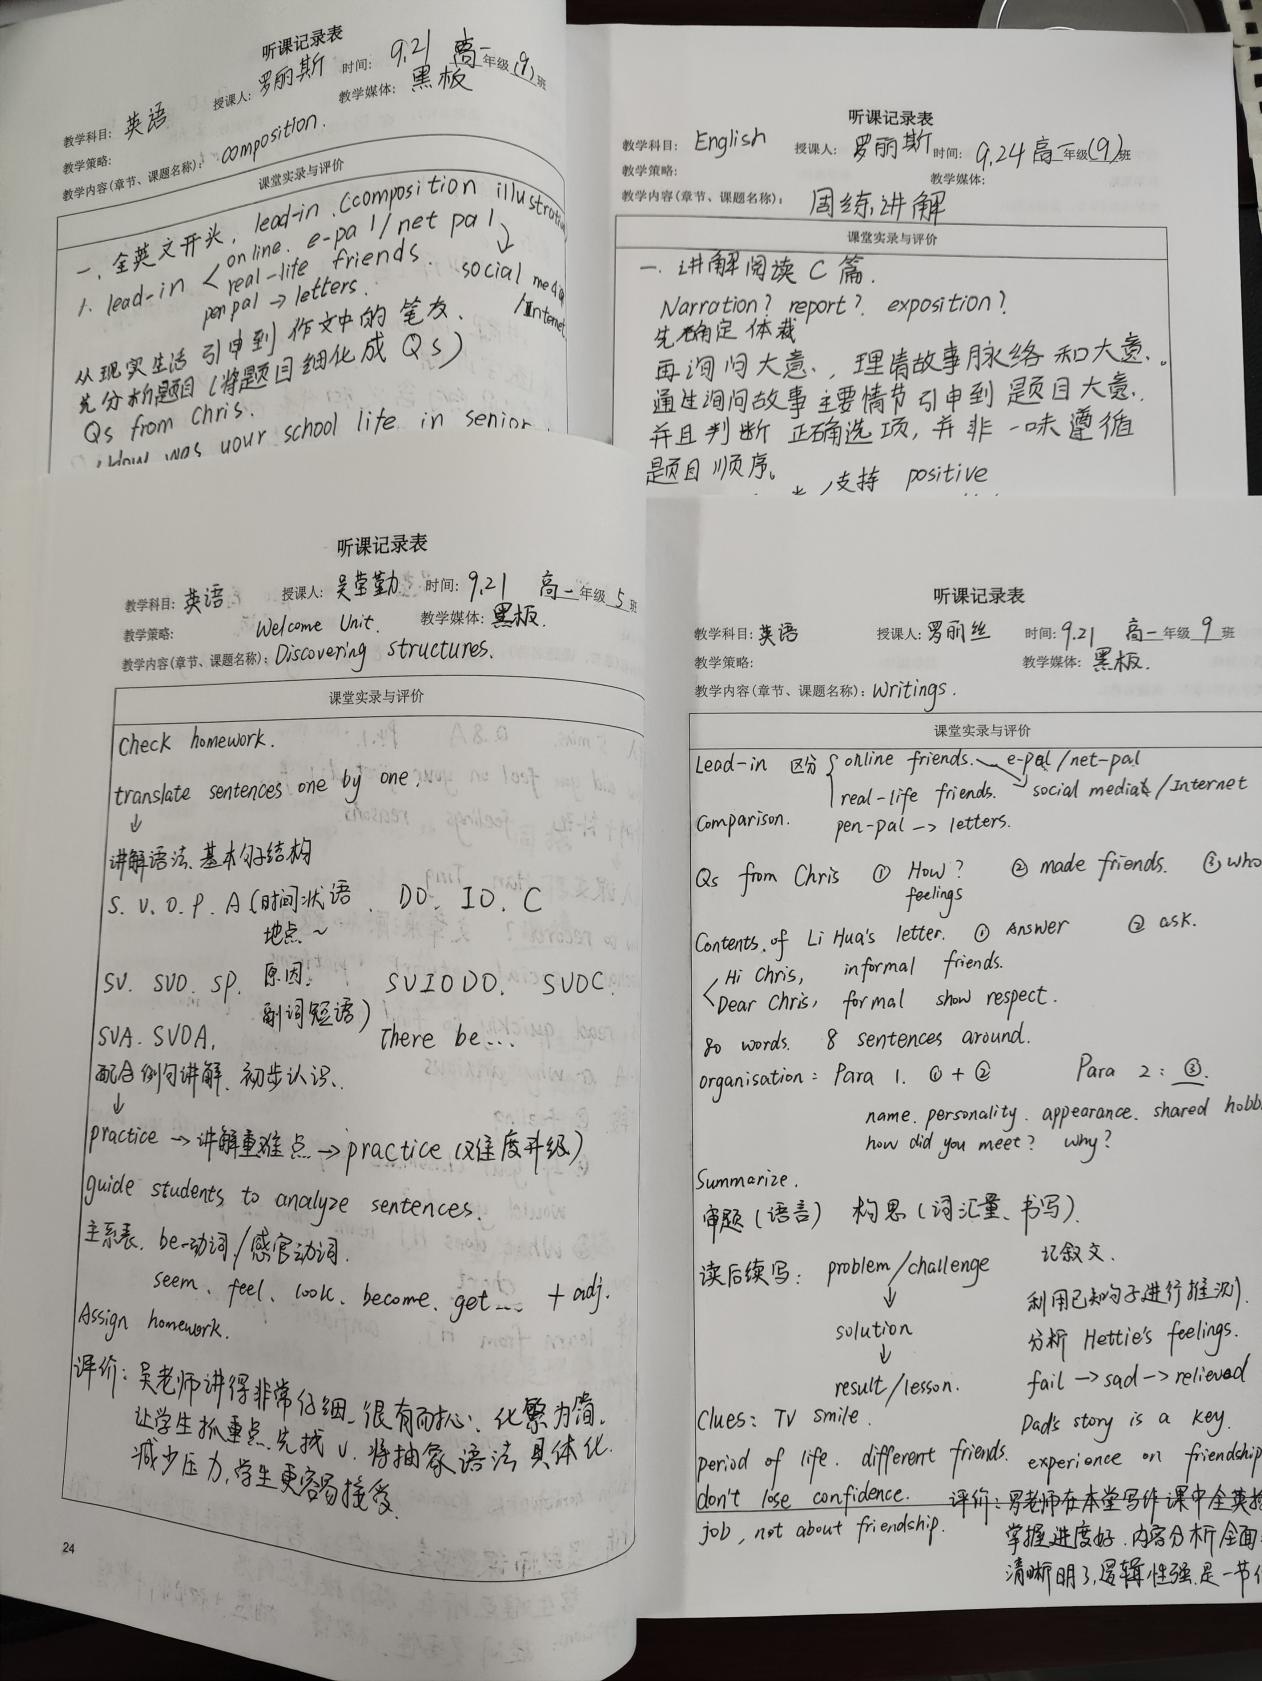 听课记录表
教学科目: 英语 授课人: 罗丽斯 时间: 9.21 高一年级(9)班
教学策略: 教学媒体: 黑板
教学内容(章节、课题名称): composition.
课堂实录与评价
一、全英文开头, lead-in (composition
1. lead-in online. e-pal/net pal
real-life friends. social media
penpal → letters. /Internet
从现实生活引申到作文中的笔友.
先分析题目(将题目细化成Qs)
Qs from Chris.
How was your school life in senior
听课记录表
教学科目: English 授课人: 罗丽斯 时间: 9.24 高一年级(9)班
教学策略: 教学媒体:
教学内容(章节、课题名称): 周练讲解
课堂实录与评价
一. 讲解阅读C篇.
Narration? report? exposition?
先确定体裁
再询问大意、, 理清故事脉络和大意、。
通过询问故事主要情节引申到题目大意,
并且判断正确选项, 并非一味遵循
题目顺序。
支持 positive
听课记录表
教学科目: 英语 授课人: 吴荣勤 时间: 9.21 高一年级5班
教学策略: Welcome Unit. 教学媒体: 黑板.
教学内容(章节、课题名称): Discovering structures.
课堂实录与评价
Check homework.
translate sentences one by one.
↓
讲解语法、基本句子结构
S. V. O. P. A (时间状语. DO. IO. C
地点~
SV. SVO. SP. 原因. SVIODO. SVOC.
副词短语)
SVA. SVOA, There be...
配合例句讲解、初步认识、
↓
practice → 讲解重难点 → practice (难度升级)
guide students to analyze sentences.
主系表. be-动词/感官动词.
seem、feel、look、become、get... + adj.
Assign homework.
评价: 吴老师讲得非常仔细、很有耐心、化繁为简.
让学生抓重点.先找V.将抽象语法具体化.
减少压力,学生更容易接受.
24
听课记录表
教学科目: 英语 授课人: 罗丽丝 时间: 9.21 高一年级9班
教学策略: 教学媒体: 黑板.
教学内容(章节、课题名称): Writings.
课堂实录与评价
Lead-in 区分 online friends. e-pal/net-pal
real-life friends. social media/Internet
Comparison. pen-pal → letters.
Qs from Chris ① How? ② made friends. ③ who
feelings
Contents of Li Hua's letter. ① Answer ② ask.
Hi Chris, informal friends.
Dear Chris, formal show respect.
80 words. 8 sentences around.
organisation: Para 1. ①+② Para 2: ③.
name. personality. appearance. shared
how did you meet? why?
Summarize.
审题(语言) 构思(词汇量、书写).
读后续写: problem/challenge 记叙文.
↓ 利用已知句子进行推测.
solution 分析 Hettie's feelings.
↓
result/lesson. fail → sad → relieved
Clues: TV smile. Dad's story is a key.
period of life. different friends. experience on friendship
don't lose confidence. 评价: 罗老师在本堂写作课中全英
job, not about friendship. 掌握进度好. 内容分析全面
清晰明了,逻辑性强.是一节